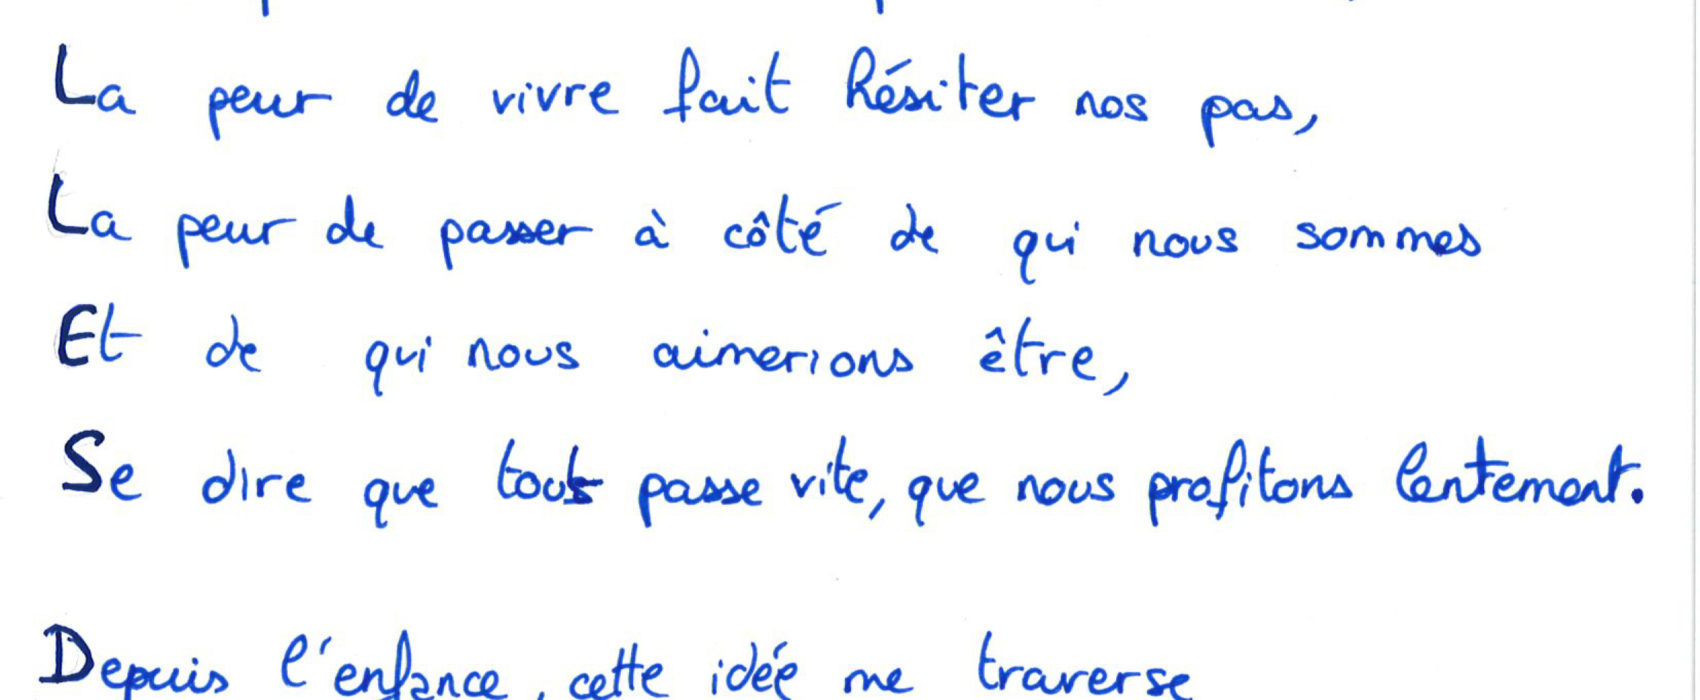 La peur de vivre fait hésiter nos pas,
La peur de passer à côté de qui nous sommes
Et de qui nous aimerions être,
Se dire que tout passe vite, que nous profitons lentement.
Depuis l'enfance, cette idée me traverse